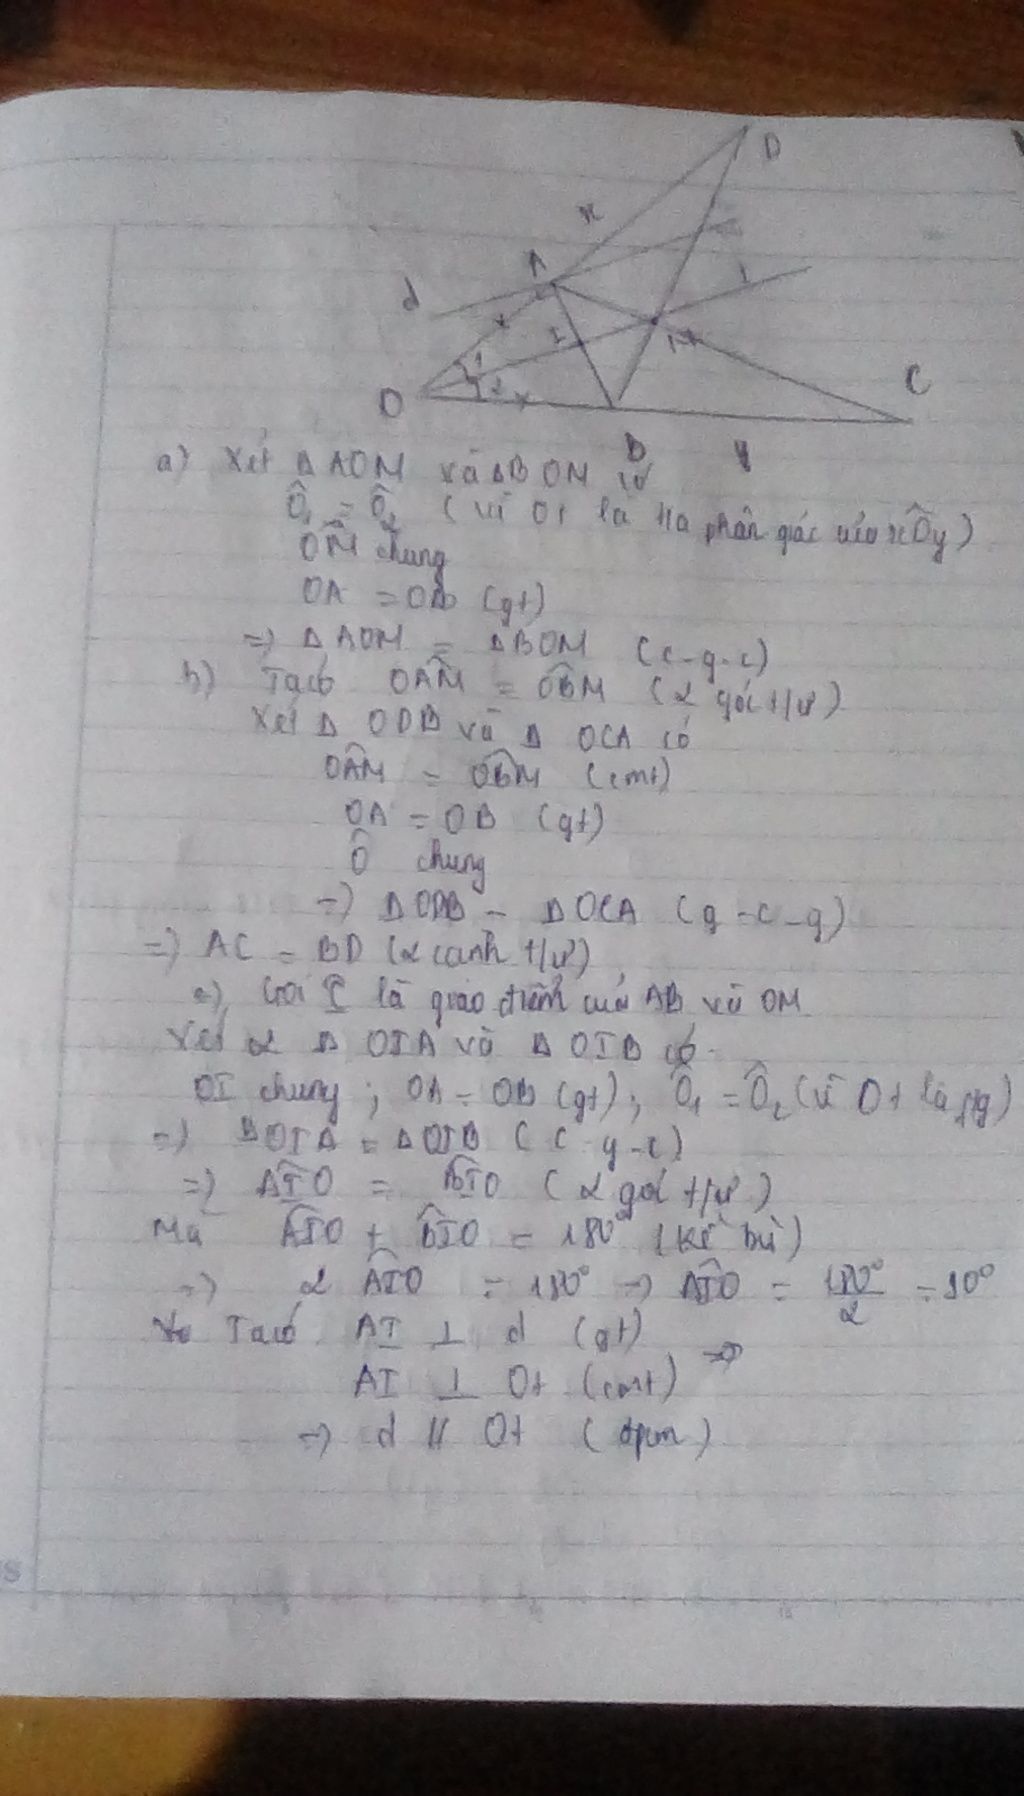 D
x
A
d
t
I
M
1
2
O
C
B
y
a) Xét Δ AOM và Δ BOM có
Ô₁ = Ô₂ (vì Ot là tia phân giác của xÔy)
OM chung
OA = OB (gt)
=> Δ AOM = Δ BOM (c-g-c)
b) Ta có OÂM = OB̂M (2 góc t/ư)
Xét Δ ODB và Δ OCA có
OÂM = OB̂M (cmt)
OA = OB (gt)
Ô chung
=> Δ ODB = Δ OCA (g-c-g)
=> AC = BD (2 cạnh t/ư)
c) Gọi I là giao điểm của AB và OM
Xét 2 Δ OIA và Δ OIB có
OI chung ; OA = OB (gt) ; Ô₁ = Ô₂ (vì Ot là p/g)
=> Δ OIA = Δ OIB (c-g-c)
=> AÎO = BÎO (2 góc t/ư)
Mà AÎO + BÎO = 180° (kề bù)
=> 2 AÎO = 180° => AÎO = 180°/2 = 90°
Ta có AI ⊥ d (gt)
AI ⊥ Ot (cmt)
=> d // Ot (đpcm)